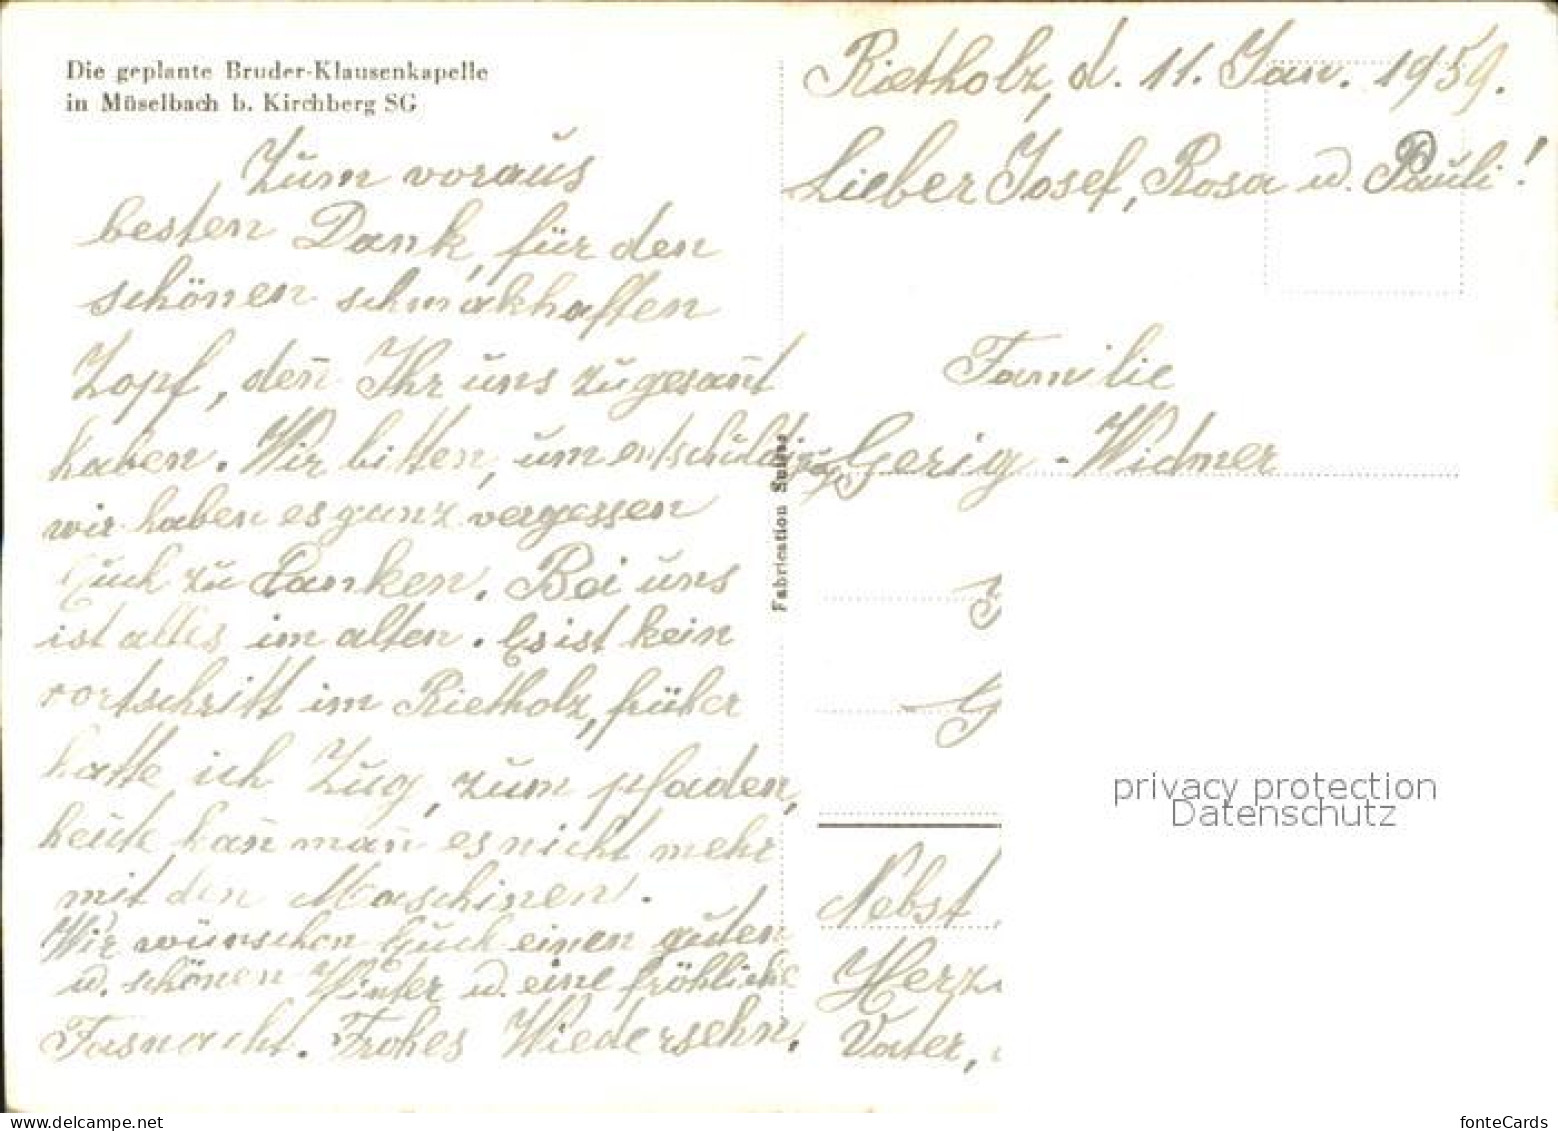 Die geplante Bruder-Klausenkapelle
in Müselbach b. Kirchberg SG
Rietholz, d. 11. Jan. 1959.
Lieber Josef, Rosa u. Pauli!
Zum voraus
besten Dank, für den
schönen schmakhaften
Zopf, den̄ Ihr uns zugesan̄t
haben. Wir bitten, um entschuldigung
wir haben es ganz vergessen
Euch zu Danken. Bei uns
ist alles im alten. Es ist kein
vortschritt im Rietholz, früher
hatte ich Zug, zum pfaden,
heute kan̄ man̄ es nicht mehr
mit den Maschinen.
Wir wünschen Euch einen guten
u. schönen Winter u. eine fröhliche
Fasnacht. Frohes Wiedersehn,
Fabrication Suisse
Familie
Gerig - Widmer
G
Nebst
Herz
Vater,
privacy protection
Datenschutz
fonteCards